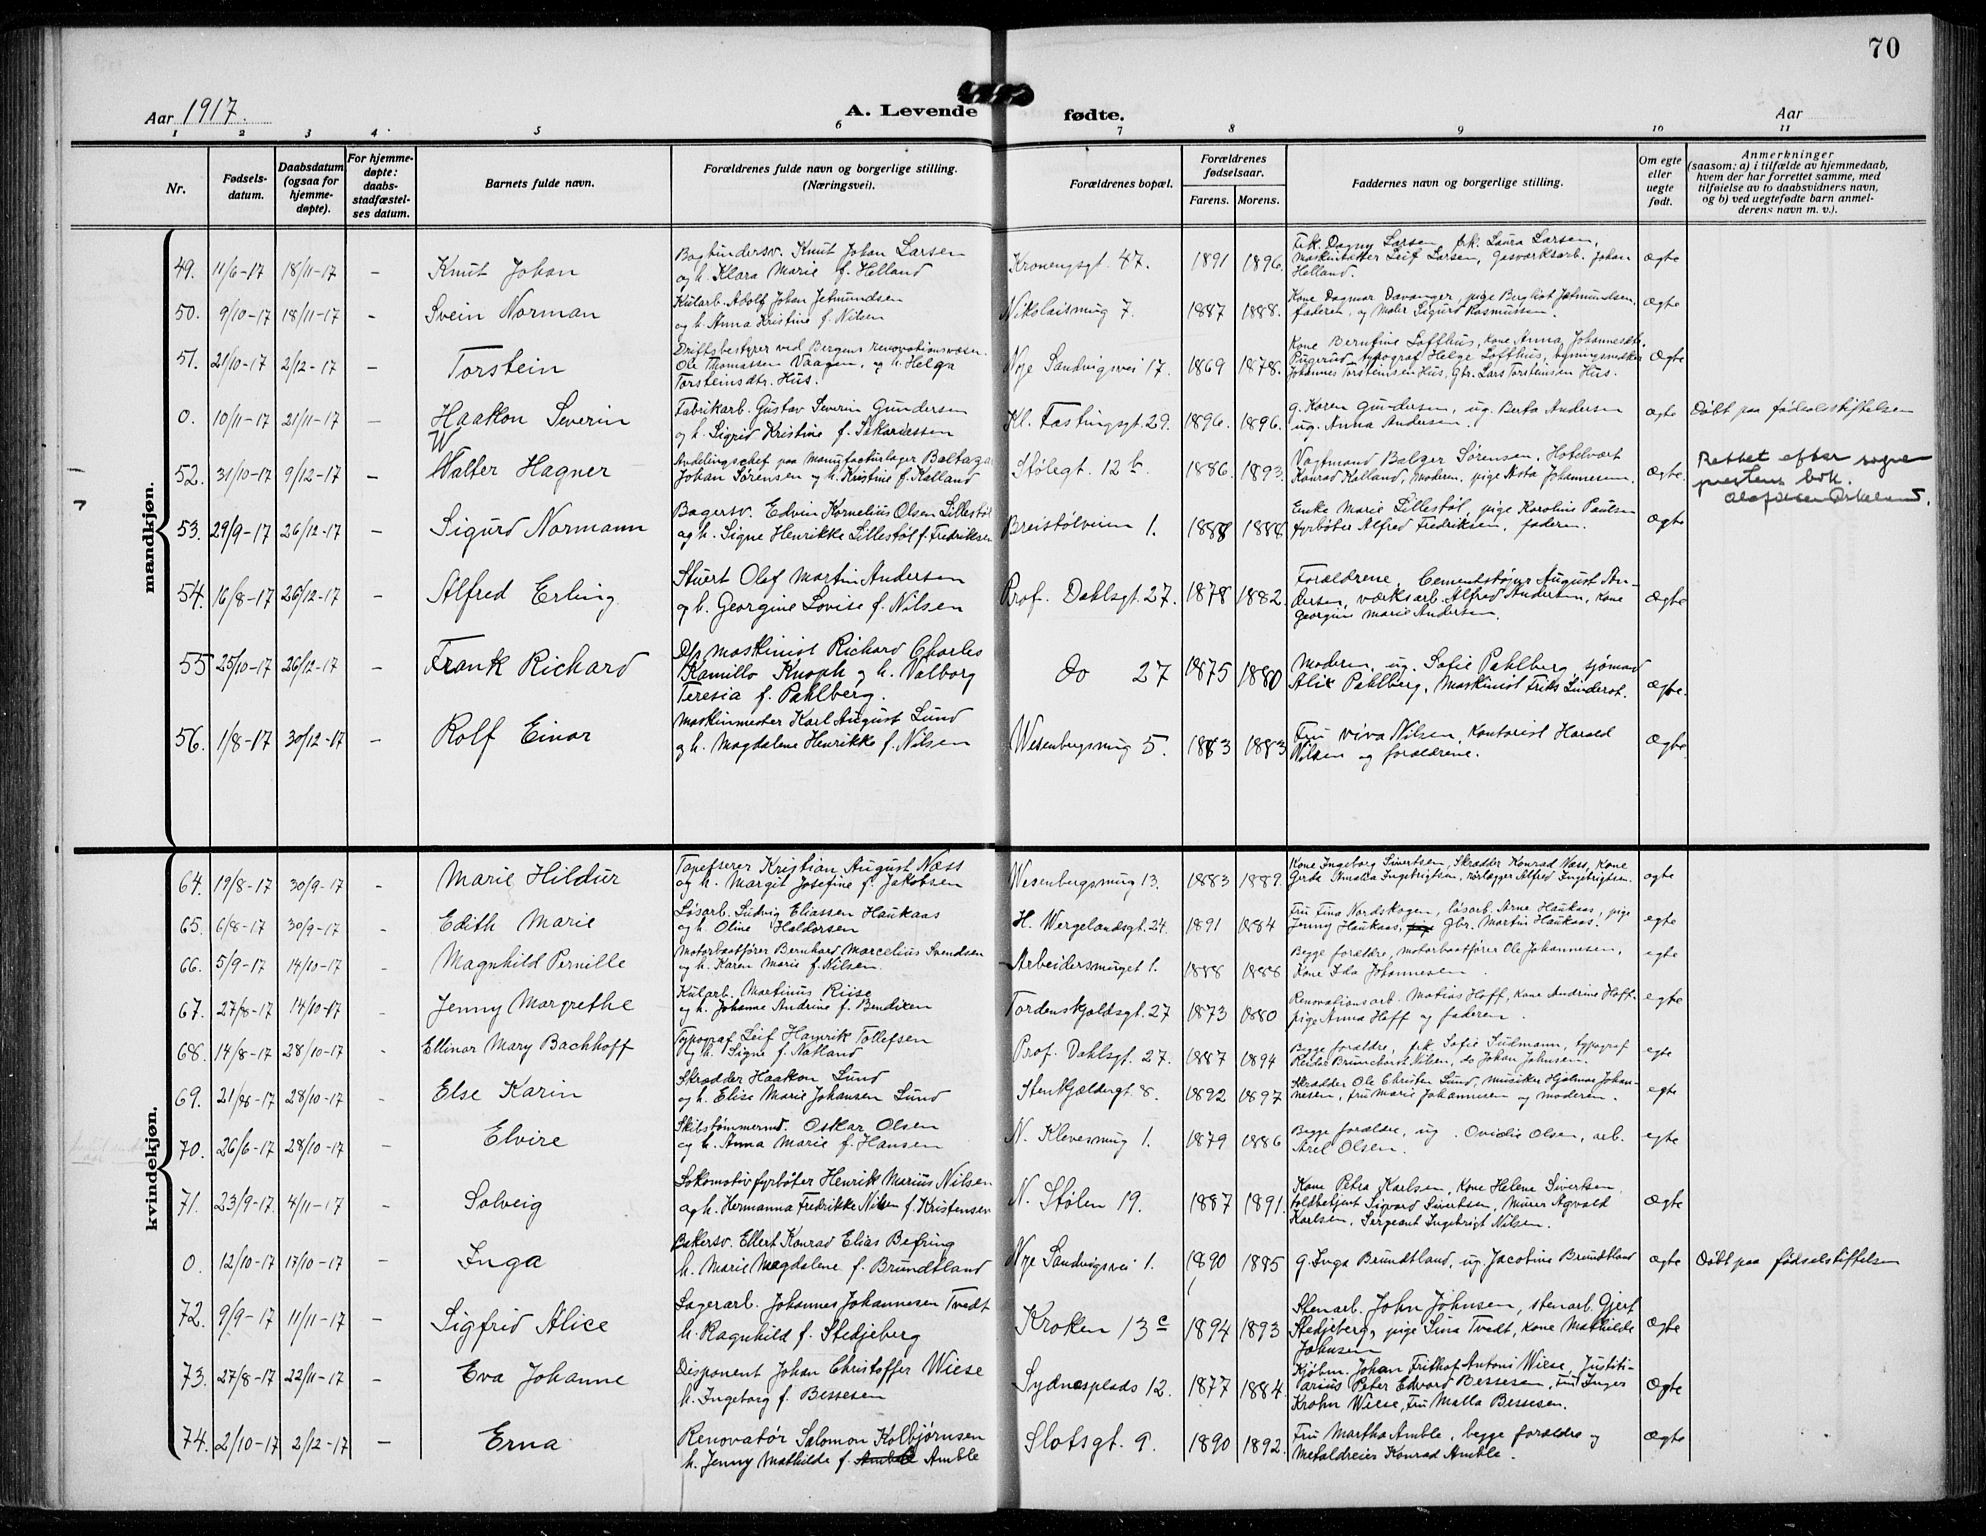 70
Aar 1917.
A. Levende fødte.
Aar
1 2 3 4 5 6 7 8 9 10 11
Nr.
Fødselsdatum.
Daabsdatum (ogsaa for hjemmedøpte).
For hjemmedøpte: daabsstadfæstelses datum.
Barnets fulde navn.
Forældrenes fulde navn og borgerlige stilling. (Næringsvei).
Forældrenes bopæl.
Forældrenes fødselsaar.
Farens. Morens.
Faddernes navn og borgerlige stilling.
Om egte eller uegte født.
Anmerkninger
(saasom: a) i tilfælde av hjemmedaab, hvem der har forrettet samme, med tilføielse av to daabsvidners navn, og b) ved uegtefødte barn anmelderens navn m. v.).
mandkjøn.
49. 11/6-17 18/11-17 – Knut Johan
Bogbindersv. Knut Johan Larsen
og h. Klara Marie f. Helland
Kronengsgt. 47. 1891 1896.
Frk. Dagny Larsen, frk. Laura Larsen,
Maskinsetter Leif Larsen, Gasværksarb. Johan
Helland.
Ægte
50. 9/10-17 18/11-17 – Svein Norman
Kularb. Adolf Johan Jetmundsen
og h. Anna Kristine f. Nilsen
Nikolaismug 7. 1887 1888.
Kone Dagmar Davanger, pige Bergliot Jetmundsen,
faderen, og Maler Sigurd Rasmussen.
Ægte
51. 21/10-17 2/12-17 – Torstein
Driftsbestyrer ved Bergens renovationsvæsen
Ole Thomassen Vaagen, og h. Helga
Torsteinsdtr. Hus.
Nye Sandvigsvei 17. 1869 1878.
Kone Berntine Lofthus, Kone Anna Johannesdtr.
Pugerud, typograf Helge Lofthus,
Johannes Torsteinsen Hus, Gbr. Lars Torsteinsen Hus.
Ægte
0. 10/11-17 21/11-17 – Haakon Severin
Fabrikarb. Gustav Severin Gundersen
og h. Sigrid Kristine f. Sakariassen
Kl. Fastingsgt. 29. 1896. 1896.
g. Karen Gundersen, ug. Berta Andersen
ug. Anna Andersen.
Ægte Døbt paa fødselsstiftelsen
W
52. 31/10-17 9/12-17 – Walter Hagner
Avdelingschef paa Manufacturlager Baltazar
Johan Sørensen og h. Kristine f. Kalland
Stølegt. 12 b. 1886. 1893.
Vagtmand Balzer Sørensen, Hotelvært
Konrad Kalland, Moderen, pige Asta Johannesen.
Ægte. Rettet efter sogne
prestens bok.
53. 29/9-17 26/12-17 – Sigurd Normann
Bagersv. Edvin Kornelius Olsen Lillestøl
og h. Signe Henrikke Lillestøl f. Fredriksen
Breistølveien 1. 1888 1888
Enke Marie Lillestøl, pige Karoline Paulsen
fyrbøter Alfred Fredriksen, faderen.
Ægte
54. 16/8-17 26/12-17 – Alfred Erling
Stuert Olaf Martin Andersen
og h. Georgine Lovise f. Nilsen
Prof. Dahlsgt. 27. 1878 1882.
Forældrene, Cementstøper August An-
dersen, værksarb. Alfred Andersen, Kone
Georgine Marie Andersen.
Ægte
55 25/10-17 26/12-17 – Frank Richard
Dp. maskinist Richard Charles
Kamillo Knoph og h. Valborg
Teresia f. Pahlberg.
do 27 1875 1880
Moderen, ug. Sofie Pahlberg, sjømand
Alik Pahlberg, Maskinist Friks Linderot.
Ægte.
56. 1/8-17 30/12-17 – Rolf Einar
Maskinmester Karl August Lund
og h. Magdalene Henrikke f. Nilsen
Wesenbergsmug 5. 1883 1883
Fru Viva Nilsen, Kontorist Harald
Nilsen og forældrene.
Ægte
kvindekjøn.
64. 19/8-17 30/9-17 - Marie Hildur
Tapetserer Kristian August Næss
og h. Margit Josefine f. Jakobsen
Wesenbergsmug 13. 1883 1889.
Kone Ingeborg Sivertsen, Skrædder Konrad Næss, Kone
Gerda Amalia Ingebrigtsen, rørlægger Alfred Ingebrigtsen.
egte
65. 6/8-17 30/9-17 - Edith Marie
Løsarb. Ludvig Eliassen Haukaas
og h. Oline Haldorsen
H. Wergelandsgt. 24. 1891 1884
Fru Tina Nordskogen, løsarb. Arne Haukaas, pige
Jenny Haukaas, Gbr. Martin Haukaas.
egte
66. 5/9-17 14/10-17 - Magnhild Pernille
Motorbaatfører Bernhard Marcelius Svendsen
og h. Karen Marie f. Nilsen.
Arbeidersmuget 1. 1888 1888
Begge forældre, motorbaatfører Ole Johannesen,
Kone Ida Johannesen.
egte
67. 27/8-17 14/10-17 - Jenny Margrethe
Kularb. Martinus Riise
og h. Johanne Andrine f. Bendixen
Tordenskjoldsgt. 27 1873 1880
Renovationsarb. Matias Hoff, Kone Andrine Hoff,
pige Anna Hoff og faderen.
egte
68. 14/8-17 28/10-17 - Ellinor Mary Bachhoff
Typograf Leif Hamrik Tollefsen
og h. Signe f. Natland
Prof. Dahlsgt. 27. 1887 1894
Begge forældre, frk. Sofie Sudmann, typograf
Reidar Brunchorst Nilsen, do Johan Johnsen.
egte
69. 21/8-17 28/10-17 - Else Karin
Skrædder Haakon Lund
og h. Elise Marie Johansen Lund
Stenkjældergt. 8. 1892 1897
Skrædder Ole Christen Lund, musiker Hjalmar Johan-
nesen, fru Marie Johannesen og moderen.
egte
70. 26/6-17 28/10-17 - Elvire
Skibstømmermd. Oskar Olsen
og h. Anna Marie f. Hansen
N. Klevesmug 1. 1879 1886
Begge forældre, ug. Ovidie Olsen, arb.
Axel Olsen.
egte
71. 23/9-17 4/11-17 - Solveig
Lokomotivfyrbøter Henrik Marius Nilsen
og h. Hermanna Fredrikke Nilsen f. Kristensen
N. Stølen 19. 1887 1891.
Kone Petra Karlsen, Kone Helene Sivertsen,
toldbetjent Sigvard Sivertsen, Murer Agvald
Karlsen, Sergeant Ingebrigt Nilsen.
Ægte
0. 12/10-17 17/10-17 - Inga
Bakersv. Ellert Konrad Elias Befring
h. Marie Magdalene f. Brundtland
Nye Sandvigsvei 1. 1890 1885
g. Inga Brundtland, ug. Jacobine Brundtland
Ægte Døbt paa fødselsstiftelsen
72. 9/9-17 11/11-17 - Sigfrid Alice
Lagerarb. Johannes Johannesen Tvedt
h. Ragnhild f. Stedjeberg
Kroken 13 c 1894 1893
Stenarb. John Johnsen, stenarb. Gjert
Stedjeberg, pige Sina Tvedt, Kone Mathilde
Johnsen
Ægte
73. 27/8-17 22/11-17 - Eva Johanne
Disponent Johan Christoffer Wiese
h. Ingeborg f. Bessesen
Sydnesplads 12. 1877 1884.
Kjøbm. Johan Frithof Antoni Wiese, Justiti-
tarius Peter Edvard Bessesen, fru Inger
Krohn Wiese, Fru Malla Bessesen.
Ægte
74. 2/10-17 2/12-17 – Erna
Renovatør Salomon Kolbjørnsen
h. Jenny Mathilde f. Amble
Slotsgt. 9. 1890 1892.
Fru Martha Amble, begge forældre og
Metaldreier Konrad Amble.
Ægte